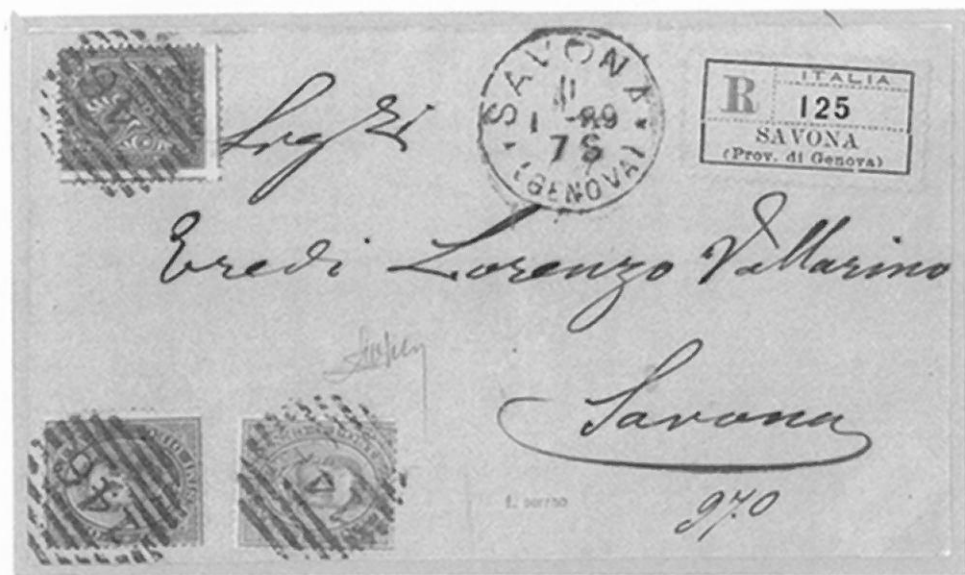 SAVONA
11
1 - 89
7 S
(GENOVA)
R
ITALIA
125
SAVONA
(Prov. di Genova)
Eredi Lorenzo Vallarino
Savona
970